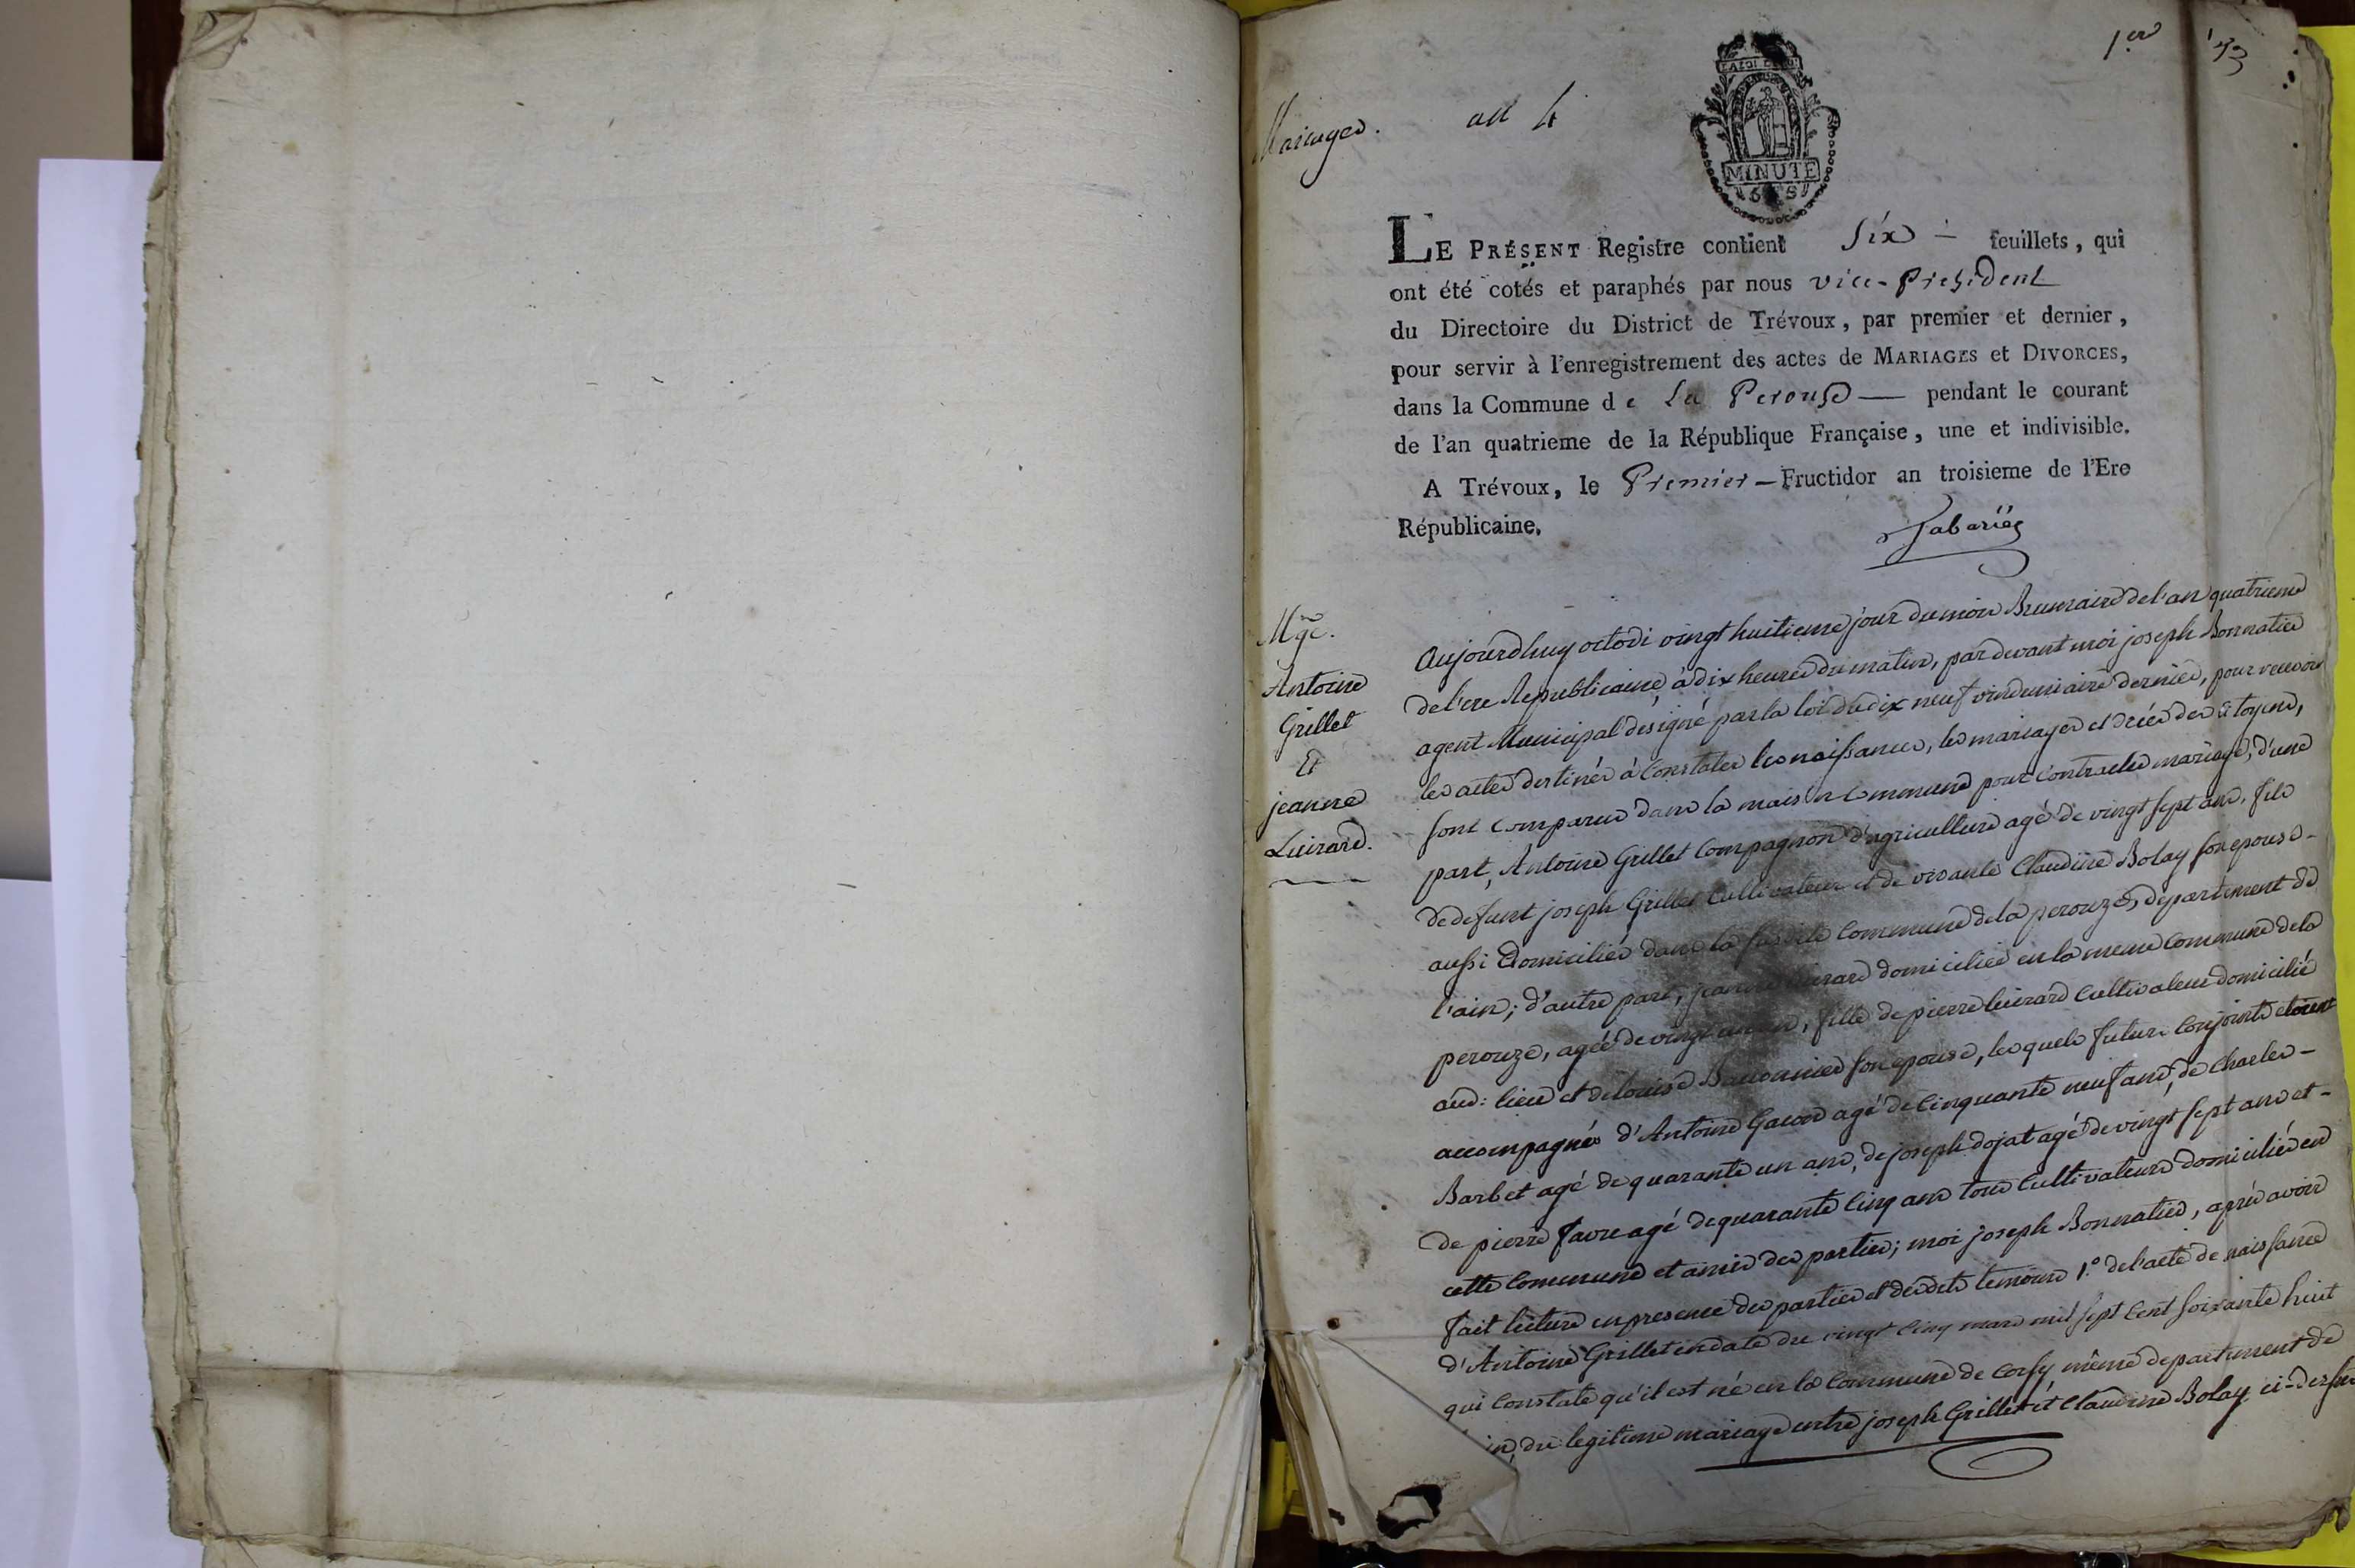 1er
73
Mariages.
an 4
LA LOI LE ROI
MINUTE
6 S
LE PRÉSENT Registre contient Six - feuillets, qui
ont été cotés et paraphés par nous vice-President
du Directoire du District de Trévoux, par premier et dernier,
pour servir à l'enregistrement des actes de MARIAGES et DIVORCES,
dans la Commune de La Perouse — pendant le courant
de l'an quatrieme de la République Française, une et indivisible.
A Trévoux, le Premier - Fructidor an troisieme de l'Ere
Républicaine.
Mge.
Antoine
Grillet
Et
jeanne
Luirard.
Aujourdhuy octodi vingt huitieme jour du mois Brumaire de l'an quatrieme
de l'ere Republicaine, à dix heures du matin, par devant moi joseph Bonnatier
agent Municipal designé par la loi du dix neuf vindemiaire dernier, pour recevoir
les actes destinés à Constater les naissances, les mariages et décès des citoyens,
sont comparus dans la maison commune pour contracter mariage, d'une
part, Antoine Grillet Compagnon d'agriculture agé de vingt sept ans, fils
de defunt joseph Grillet Cultivateur et de vivante Claudine Bolay son epouse -
aussi domiciliés dans la susdite Commune de la perouze, departement de
l'ain; d'autre part, jeanne Luirard domiciliée en la meme commune de la
perouze, agée de vingt un an, fille de pierre luirard Cultivateur domicilié
aud: lieu et de louise son epouse, lesquels futurs Conjoints etoient
accompagnés d'Antoine Gacon agé de Cinquante neuf ans, de Charles -
Barbet agé de quarante un ans, de joseph dojat agé de vingt sept ans et -
de pierre favre agé de quarante Cinq ans tous Cultivateurs domiciliés en
cette Commune et amis des parties; moi joseph Bonnatier, après avoir
fait lecture en presence des parties et desdits temoins 1.° de l'acte de naissance
d'Antoine Grillet en date du vingt Cinq mars mil sept Cent soixante huit
qui Constate qu'il est né en la Commune de Corsy même departement de
du legitime mariage entre joseph Grillet et Claudine Bolay ci-dessus